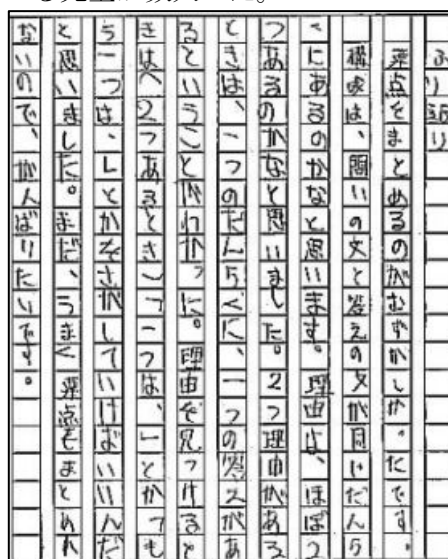 ふり返り
要点をまとめるのがむずかしかったです。
構成は、問いの文と答えの文が同じだんら
くにあるのかなと思います。理由は、ほぼ2つ
つあるのかなと思いました。2つ理由がある
ときは、一つのだんらくに、一つの答えがあ
るということがわかった。理由を見つけると
きは〈2つあるとき〉一つは、一とかつも
う一つは、しとかをさがしていけばいいんだ
と思いました。まだ、うまく要点をまとめれ
ないので、がんばりたいです。